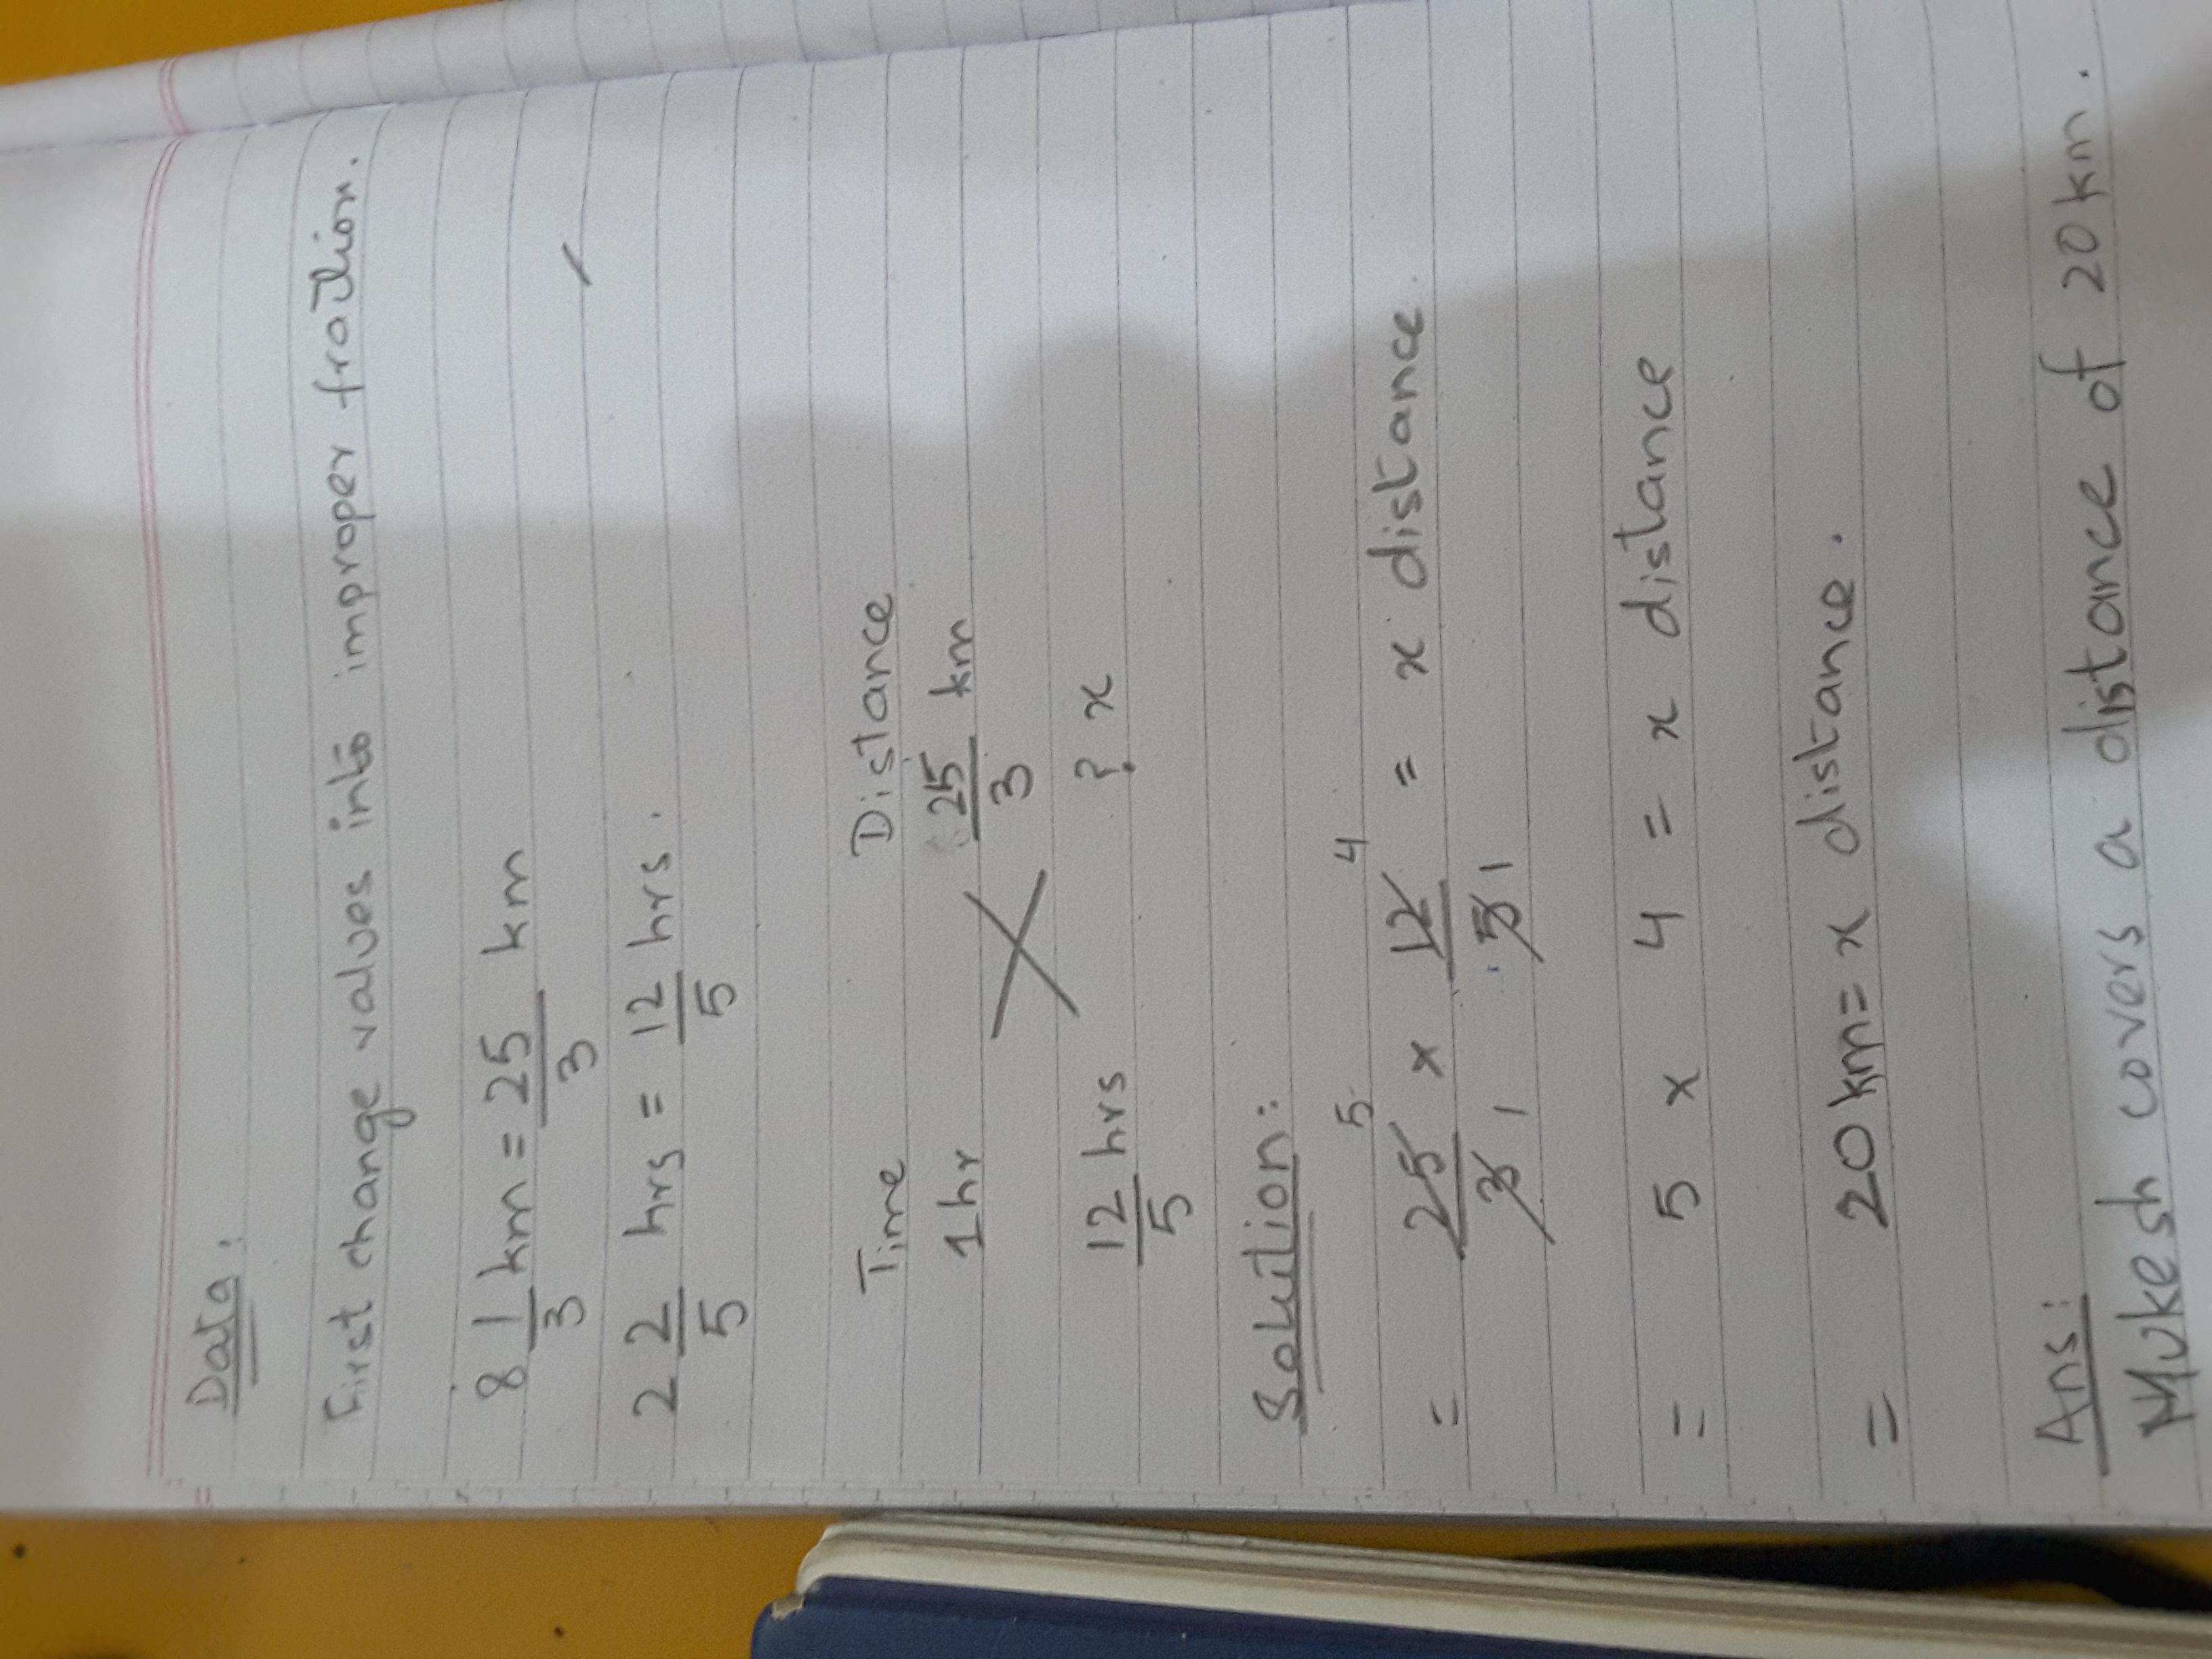 Data:
First change values into improper fraction.
8 1/3 km = 25/3 km
2 2/5 hrs = 12/5 hrs.
Time Distance
1hr 25/3 km
12/5 hrs ? x
Solution:
= 25/3 5 1 x 12/5 4 1 = x distance.
= 5 x 4 = x distance
= 20km = x distance.
Ans:
Mukesh covers a distance of 20km.